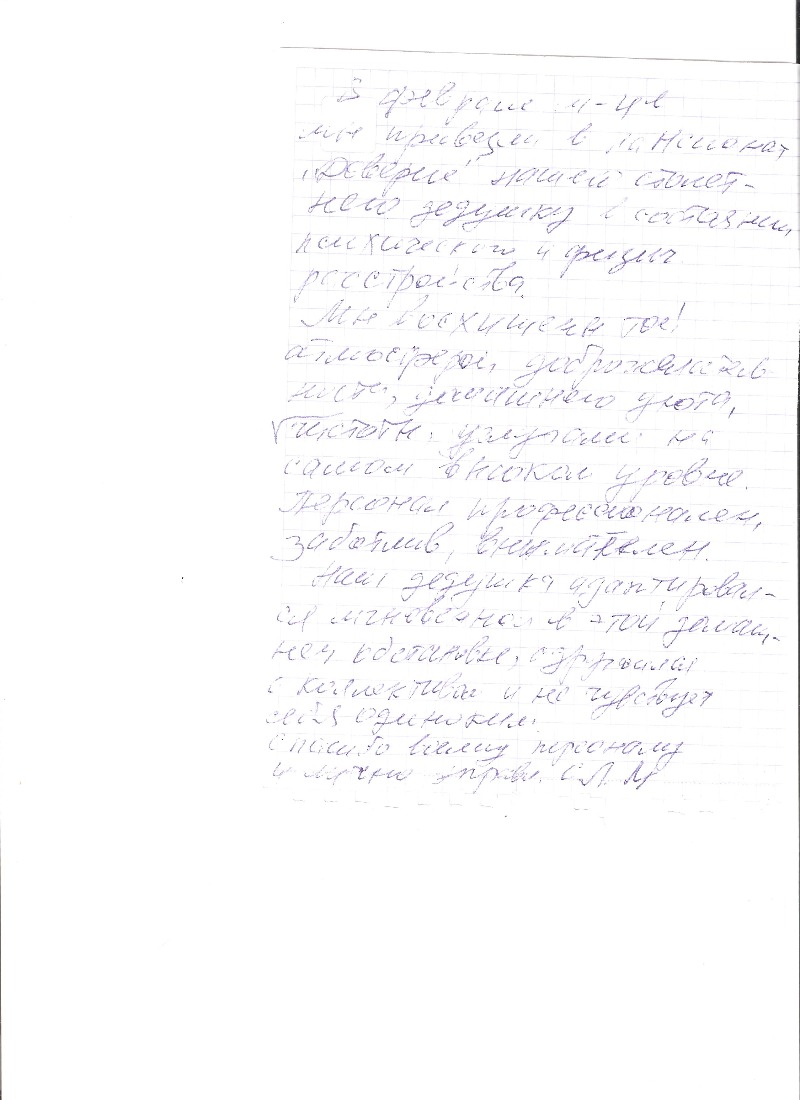 В феврале м-це
мы привезли в пансионат
"Доверие" нашего столет-
него дедушку в состоянии
психического и физич.
расстройства.
Мы восхищены той
атмосферой, доброжелатель-
ности, домашнего уюта,
чистоты. услугами на
самом высоком уровне.
Персонал профессионален,
заботлив, внимателен.
Наш дедушка адаптировал-
ся мгновенно в этой домаш-
ней обстановке, сдружился
с коллективом и не чувствует
себя одиноким.
спасибо всему персоналу
и лично С.Л.М